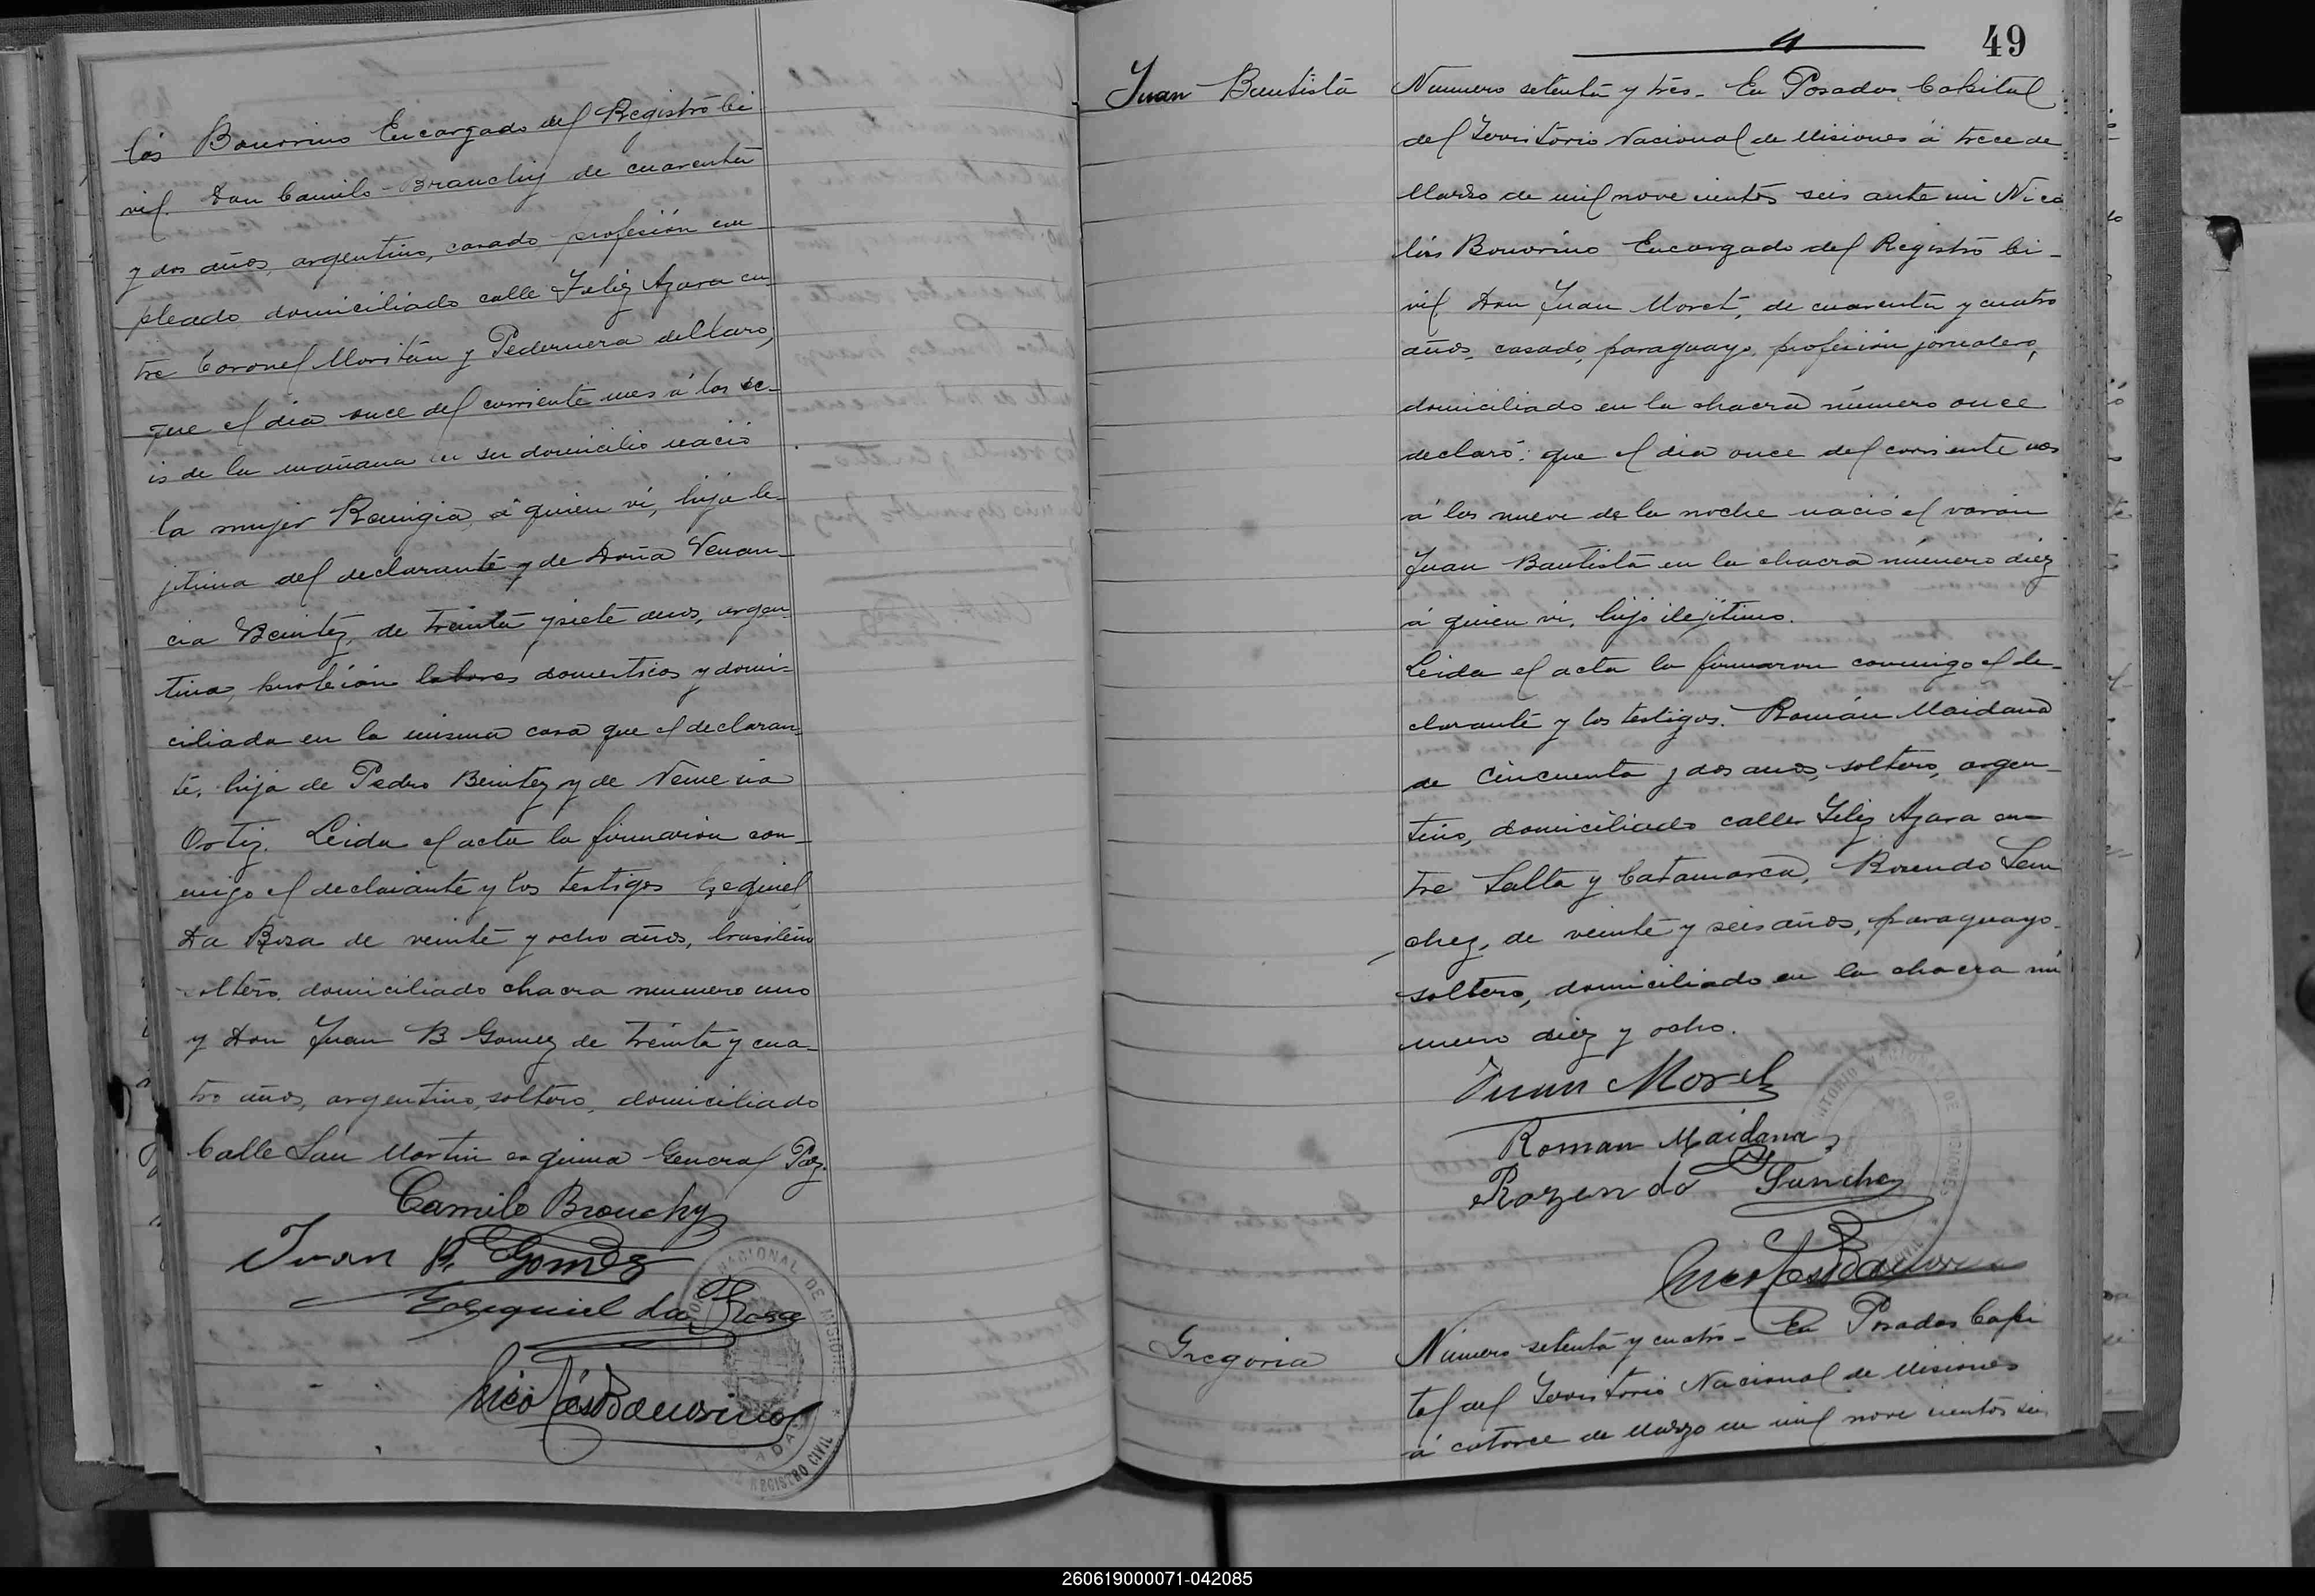 lás Bouvrino Encargado del Registro Ci
vil. Don Camilo Brauchy de cuarenta
y dos años, argentino, casado profesión em
pleado domiciliado calle Feliz Azara en
tre Coronel Moritán y Pedernera declaró,
que el dia once del corriente mes á las se-
is de la mañana en su domicilio nació
la mujer Remigia, á quien vi, hija le-
jitima del declarante y de Doña Venan-
cia Benitez, de treinta y siete años, argen
tina, profesión labores domesticos y domi-
ciliada en la misma casa que el declaran
te, hija de Pedro Benitez y de Nemesia
Ortiz. Leida el acta la firmaron con-
migo el declarante y los testigos Ezequiel
Da Rosa de veinte y ocho años, brasilero
soltero, domiciliado chacra numero uno
y Don Juan B Gomez de treinta y cua-
tro años, argentino, soltero, domiciliado
Calle San Martin esquina General Paz.
Camilo Brouchy
Juan B. Gomez
Ezequiel da Rosa
Nicolás Bouvrino
NACIONAL DE MISIONES
REGISTRO CIVIL
49
Juan Bautista
Numero setenta y tres - En Posadas Capital
del Territorio Nacional de Misiones á trece de
Marzo de mil novecientos seis ante mi Nico
lás Bouvrino Encargado del Registro Ci-
vil Don Juan Morel, de cuarenta y cuatro
años, casado, paraguayo, profesión jornalero,
domiciliado en la chacra número once
declaró: que el dia once del corriente mes
á las nueve de la noche nació el varón
Juan Bautista en la chacra número diez
á quien vi, hijo ilejitimo.
Leida el acta la firmaron conmigo el de-
clarante y los testigos. Román Maidana
de cincuenta y dos años, soltero, argen-
tino, domiciliado calle Feliz Azara en-
tre Salta y Catamarca, Rosendo San
chez, de veinte y seis años, paraguayo
soltero, domiciliado en la chacra nú
mero diez y ocho.
Juan Morel
Roman Maidana
Rozendo Sanchez
Nicolás Bouvrino
NACIONAL DE MISIONES
CIVIL
Gregoria
Número setenta y cuatro - En Posadas Capi
tal del Territorio Nacional de Misiones
á catorce de Marzo de mil novecientos seis
260619000071-042085